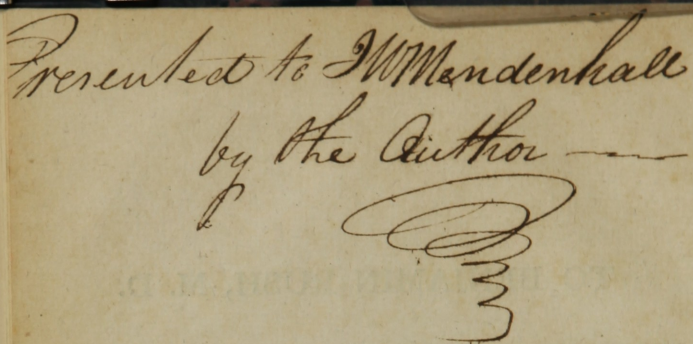 Presented to TWMendenhall
by the Author —